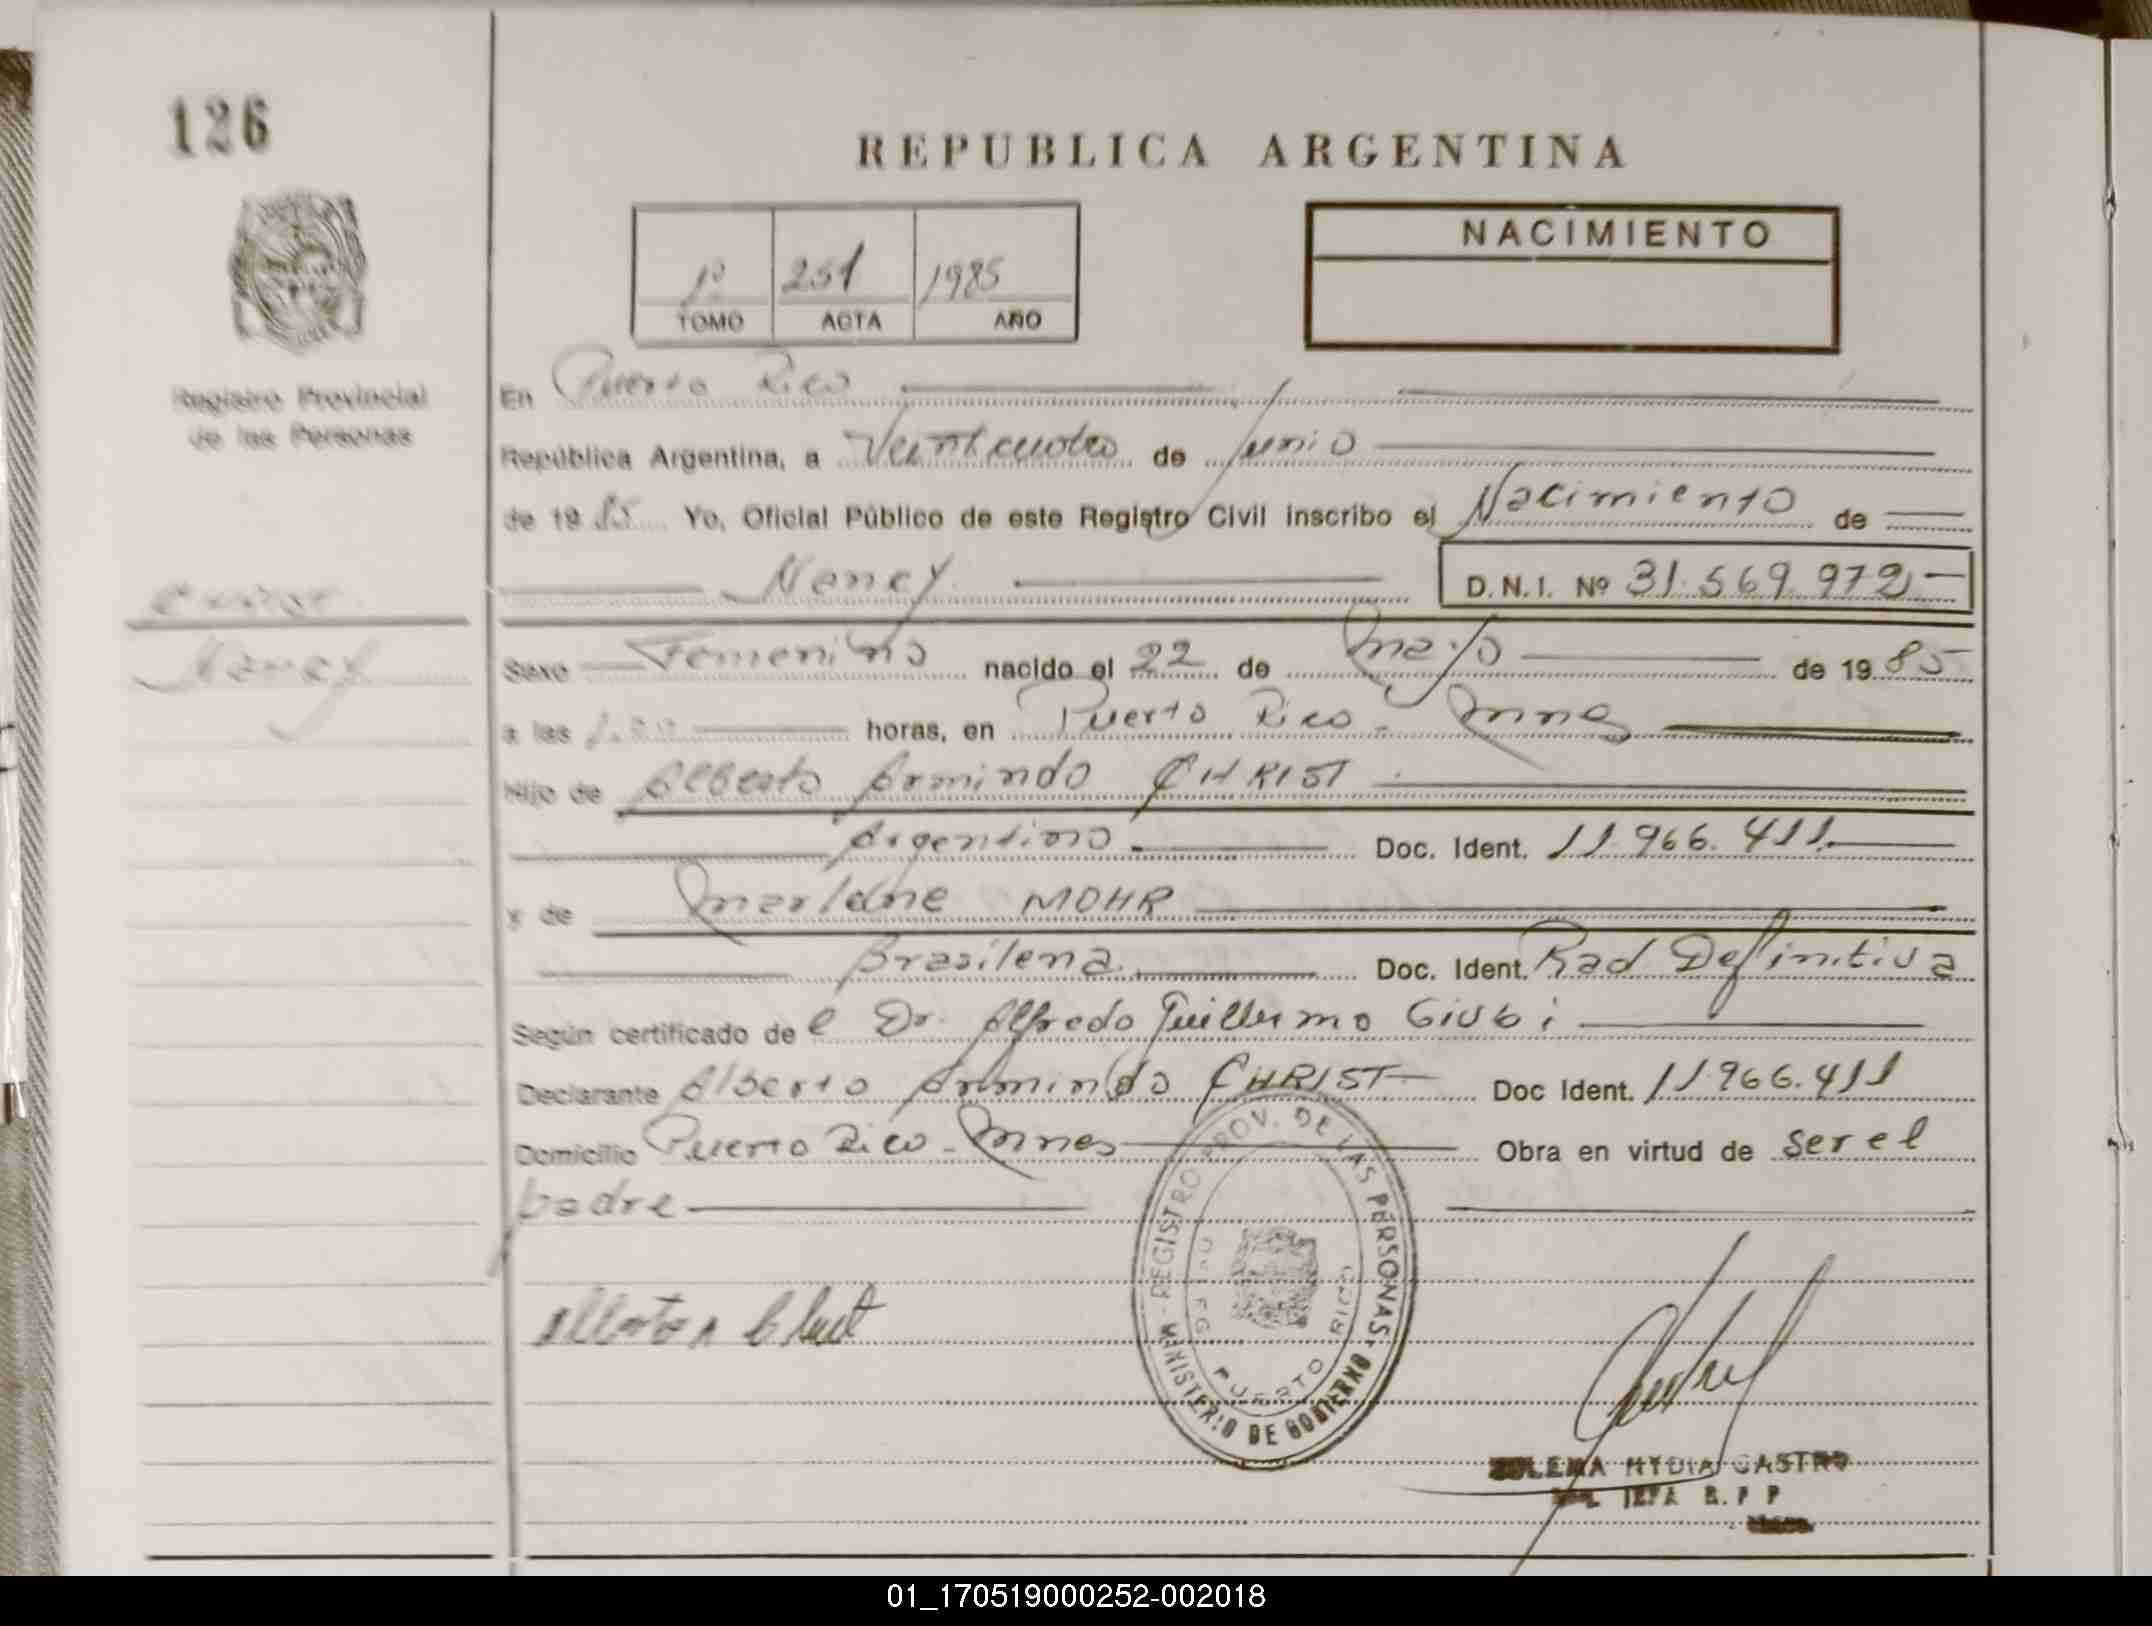 126
REPUBLICA ARGENTINA
1º 251 1985
TOMO ACTA AÑO
NACIMIENTO
Registro Provincial
de las Personas
En Puerto Rico
República Argentina, a Veinticuatro de Junio
de 1985 Yo, Oficial Público de este Registro Civil inscribo el Nacimiento de
Nancy D.N.I. Nº 31.569.972
CHRIST
Nancy
Sexo Femenino nacido el 22 de Mayo de 1985
a las horas, en Puerto Rico - Mnes
Hijo de Alberto Armindo CHRIST
Argentino Doc. Ident. 11.966.411
y de Marlene MOHR
Brasilena Doc. Ident. Rad Definitiva
Según certificado de l Dr. Alfredo Guillermo Giubi
Declarante Alberto Armindo CHRIST Doc Ident. 11.966.411
Domicilio Puerto Rico - Mnes Obra en virtud de ser el
padre
MINISTERIO DE GOBIERNO - REGISTRO PROV. DE LAS PERSONAS
PUERTO RICO
Alberto A Christ
MYDIA CASTRO
JEFA R.P.P
01_170519000252-002018